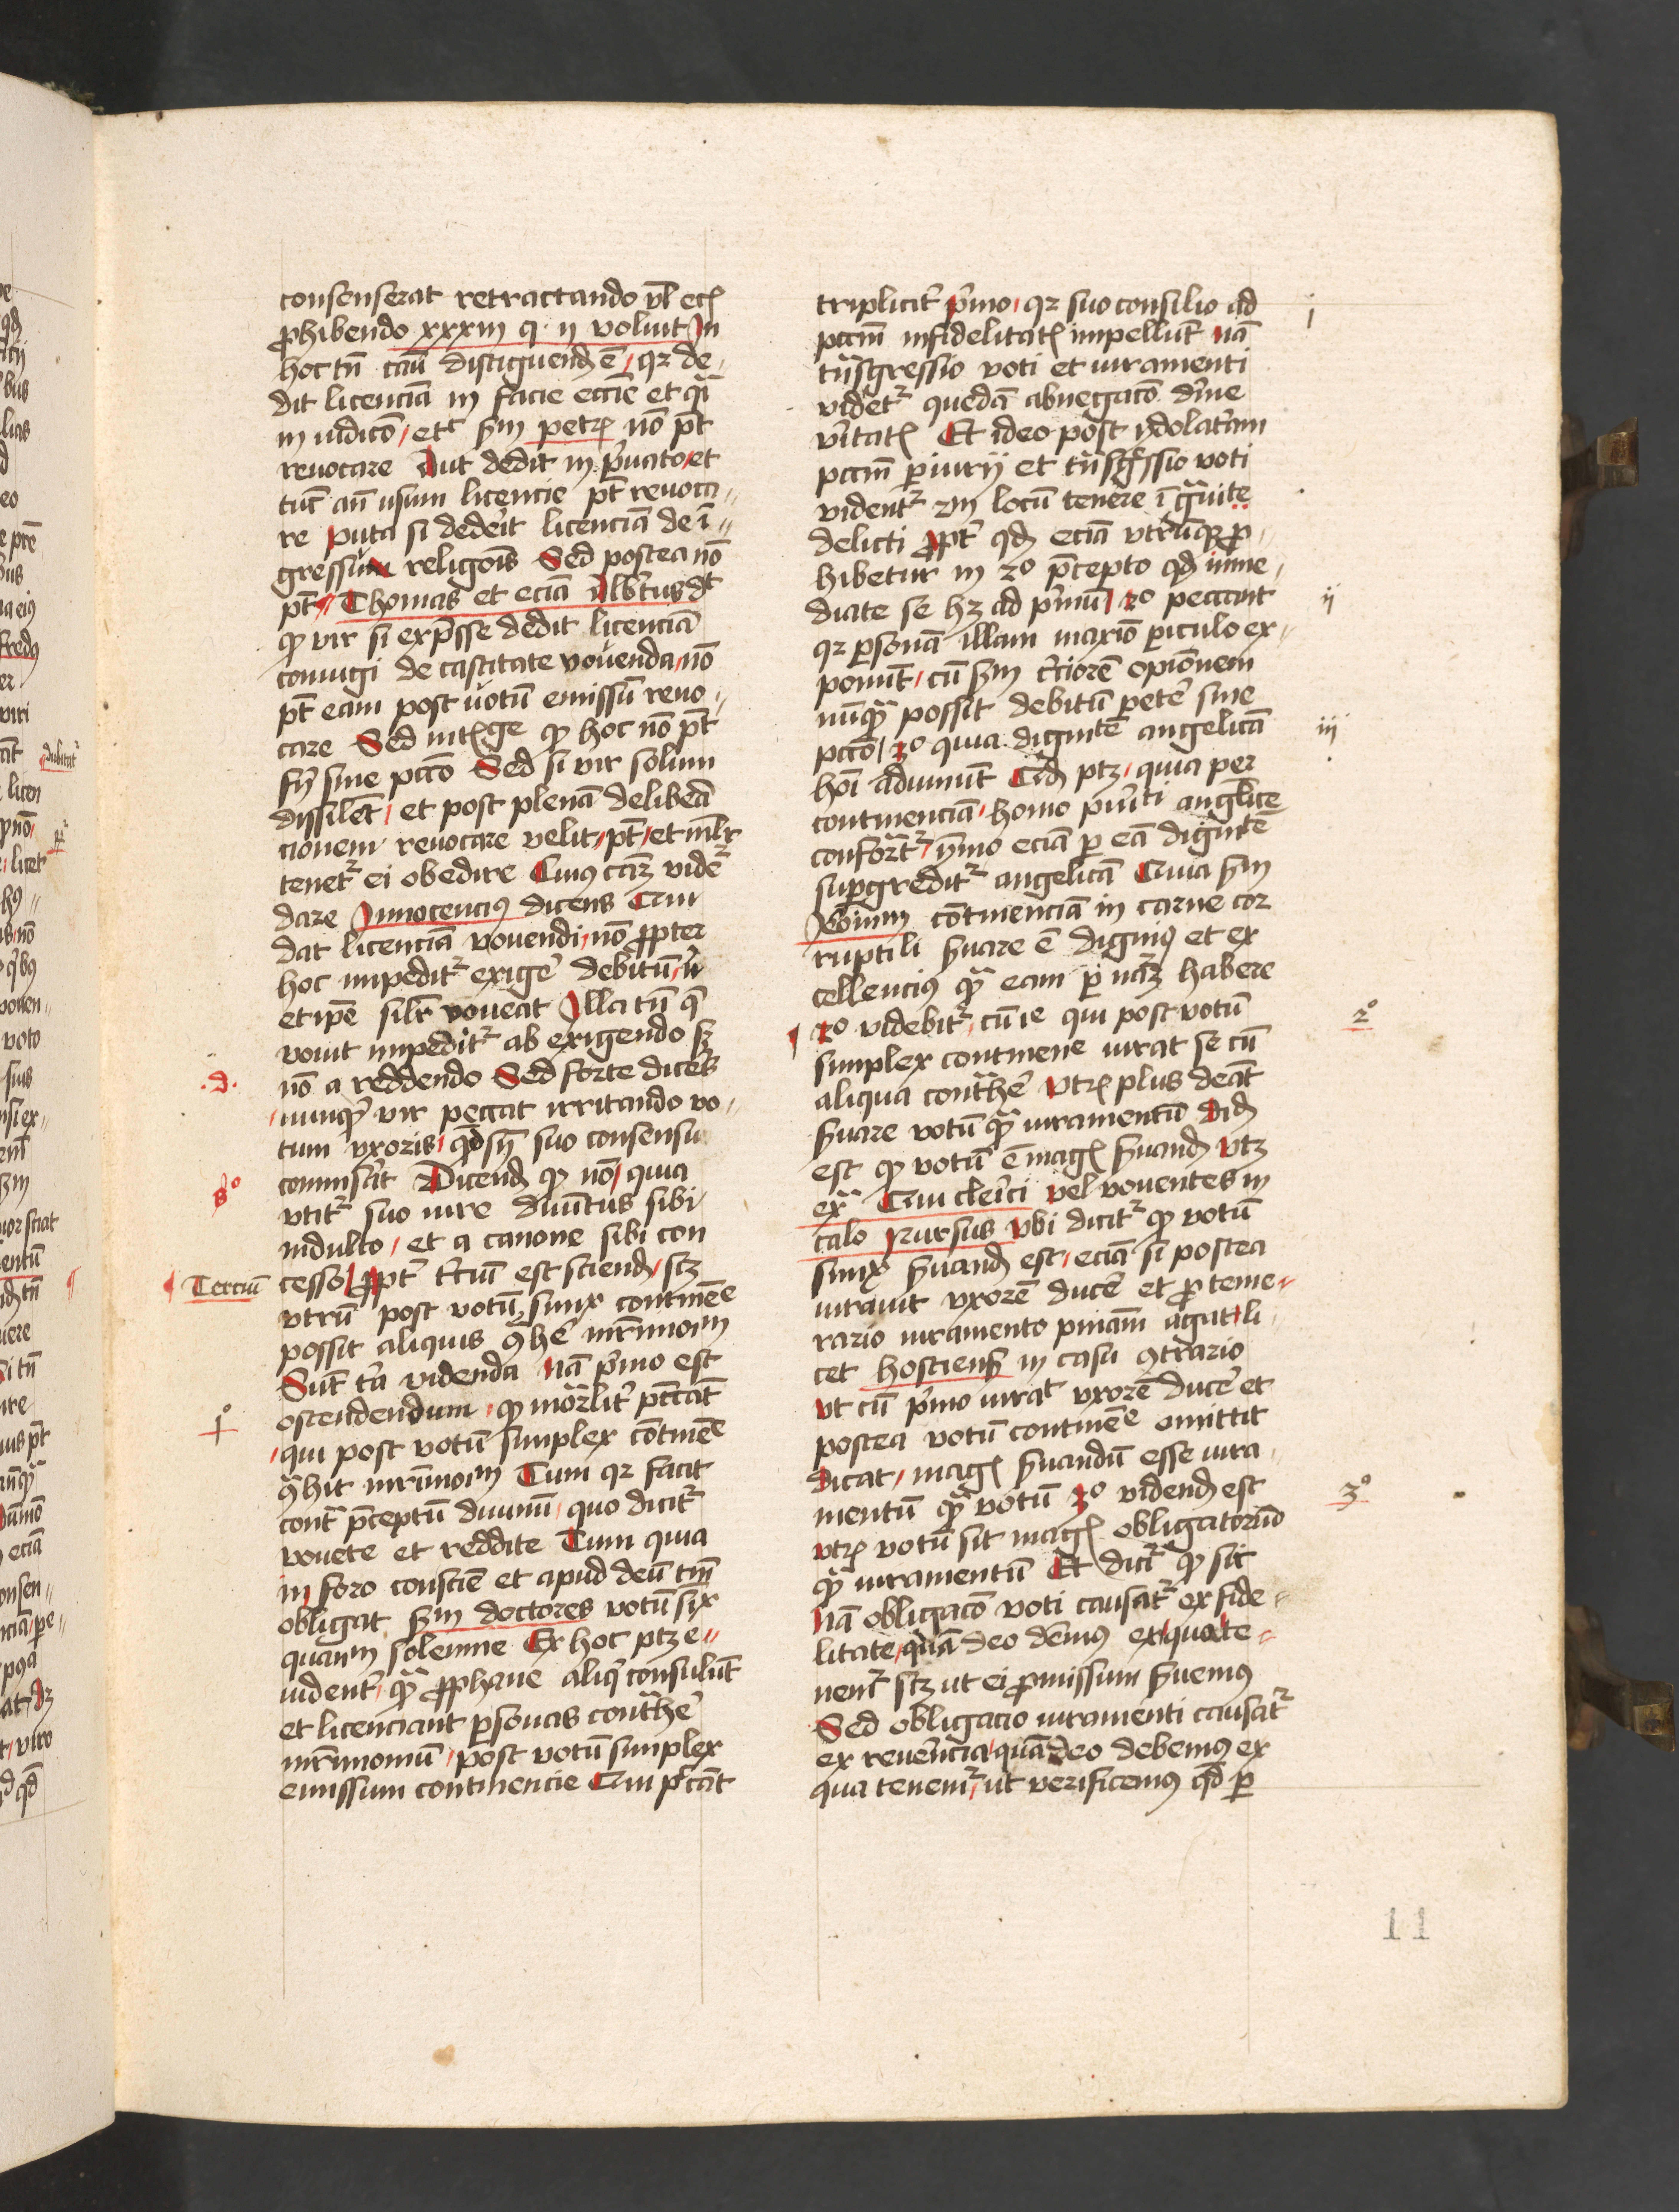 consenserat retractando vl̄ eciā
ꝓhibendo xxxiii q. ii voluit In
hoc tn̄ cauī distīguendū ē / qꝛ de„
dit licenciā in facie ecciē et q̄i
in iudico / etc̄ sm petrū nō pt̄
reuocare Aut dedit in p̄uato / et
tūc an̄ usum licencie pt̄ reuoca„
re puta si dedeīt licenciā de ī„
gressu religōis Sed postea nō
pt̄ // Thomas et eciā Albt̄us dt̄
ꝙ vir si exp̄sse dedit licenciā
coniugi de castitate vouenda / nō
pt̄ eam post uotū emissū reuo„
care Sed intellige ꝙ hoc nō pt̄
fīj sine pccō Sed si vir solum
dissilet / et post plenā delibeā
cionem reuocare velit / pt̄ / et ml̄r
tenet᷑ ei obedire Cuiꝰ cāꝫ vide᷑
dare Innocenciꝰ dicens Qui
dat licenciā vouendi / nō ꝓpter
hoc impedit᷑ exiġe debitū / n̄
et ipē sil̄r voueat Illa tn̄ q̄
vouit impedit᷑ ab exigendo sꝫ
.d. nō a reddendo Sed forte dices
nunquid vir peccat irritando vo„
tum vxoris / qd̄ suo consensu
comisit Dicendū ꝙ nō / quia
so vtit᷑ suo iure diuītus sibi
indulto / et a canone sibi con
Terciū cesso ꝓpt̄ t̄ciū est sciendū / scꝫ
vtrū post votū simx contineē
possit aliquis ꝯhe᷑ mr̄imoīm
Sūt t̄ia videnda nā p̄mo est
1o ostendendum / ꝙ mōrlit̄ pccat
qui post votū simplex cōtineē
ꝯhit mr̄imoīm Tum qꝛ facit
cont̄ p̄ceptū diuinū / quo dicit᷑
vouete et reddite Tum quia
in foro consciē et apud deū tm̄
obligat sm doctores votū six
quam solenne Ex hoc ptꝫ e„
uident̄ / ꝙ ꝓphane aliq̄ consulūt
et licenciant ꝑsonas contrhe᷑
mr̄imoniū / post votū simplex
emissum continencie Qui pccāt
triplicit̄ p̄mo / qꝛ suo consilio ad i
pccm infidelitatis impellūt nā
tn̄sgressio voti et iuramenti
videt᷑ quedā abnegacō diuine
vītatis Et ideo post ydolatriam
pccm ꝑiurij et tn̄sgressio voti
vident᷑ 2m locū tenere ī gͣuite
delicti ꝓpt̄ qd̄ eciā vtrūqꝫ ꝓ„
hibetur in 2o p̄cepto qd̄ ime„
diate se hꝫ ad p̄mū 2o peccant ii
qꝛ ꝑsonā illam maxīo ꝑiculo ex„
ponūt / cū sm t̄ciorē opionem
nūqͣ possit debitū pete᷑ sine
pccō / 3o quia dignitē angelicā iii
hoī adimūt Qd̄ ptꝫ / quia per
continenciā / homo puīti anglice
confort᷑ / ymo eciā ꝑ eā dignitē
suꝑgredit᷑ angelicā Quia sm
Ieronim cōtinenciā in carne cor
ruptili s̄uare ē digniꝰ et ex
cellenciꝰ qͣ eam ꝑ nāꝫ habere
2o videbit᷑ / cū is qui post votū 2o
simplex continene iurat se cū
aliqua contrahe᷑ vtrū plus debeat
s̄uare votū qͣ iuramentū Dicendū
est ꝙ votū ē magis s̄uandū vtꝫ
exͣ Qui cleīci vel vouentes in
calo Rursus vbi dicit᷑ ꝙ votū
simx s̄uandū est / eciā si postea
iurauit vxorē duce᷑ et ꝓ teme„
rario iuramento pniam agat / li
cet hostiensis in casu ꝯtrario
vt cū p̄mo iurat vxorē duce᷑ et
postea votū contineē omittit
dicat / magis s̄uandū esse iura„
mentū qͣ votū 3o videndū est 3o
vtrū votū sit magis obligatoriū
qͣ iuramentū Et dicit᷑ ꝙ sit
nā obligacō voti causat᷑ ex fide„
litate / quā deo demꝰ ex qua te„
nent᷑ scꝫ ut ei ꝓmissum s̄uemꝰ
Sed obligacio iuramenti causat᷑
ex reuerēcia / quā deo debemꝰ ex
qua tenem᷑ / ut verificemꝰ qd̄ ꝑ
11